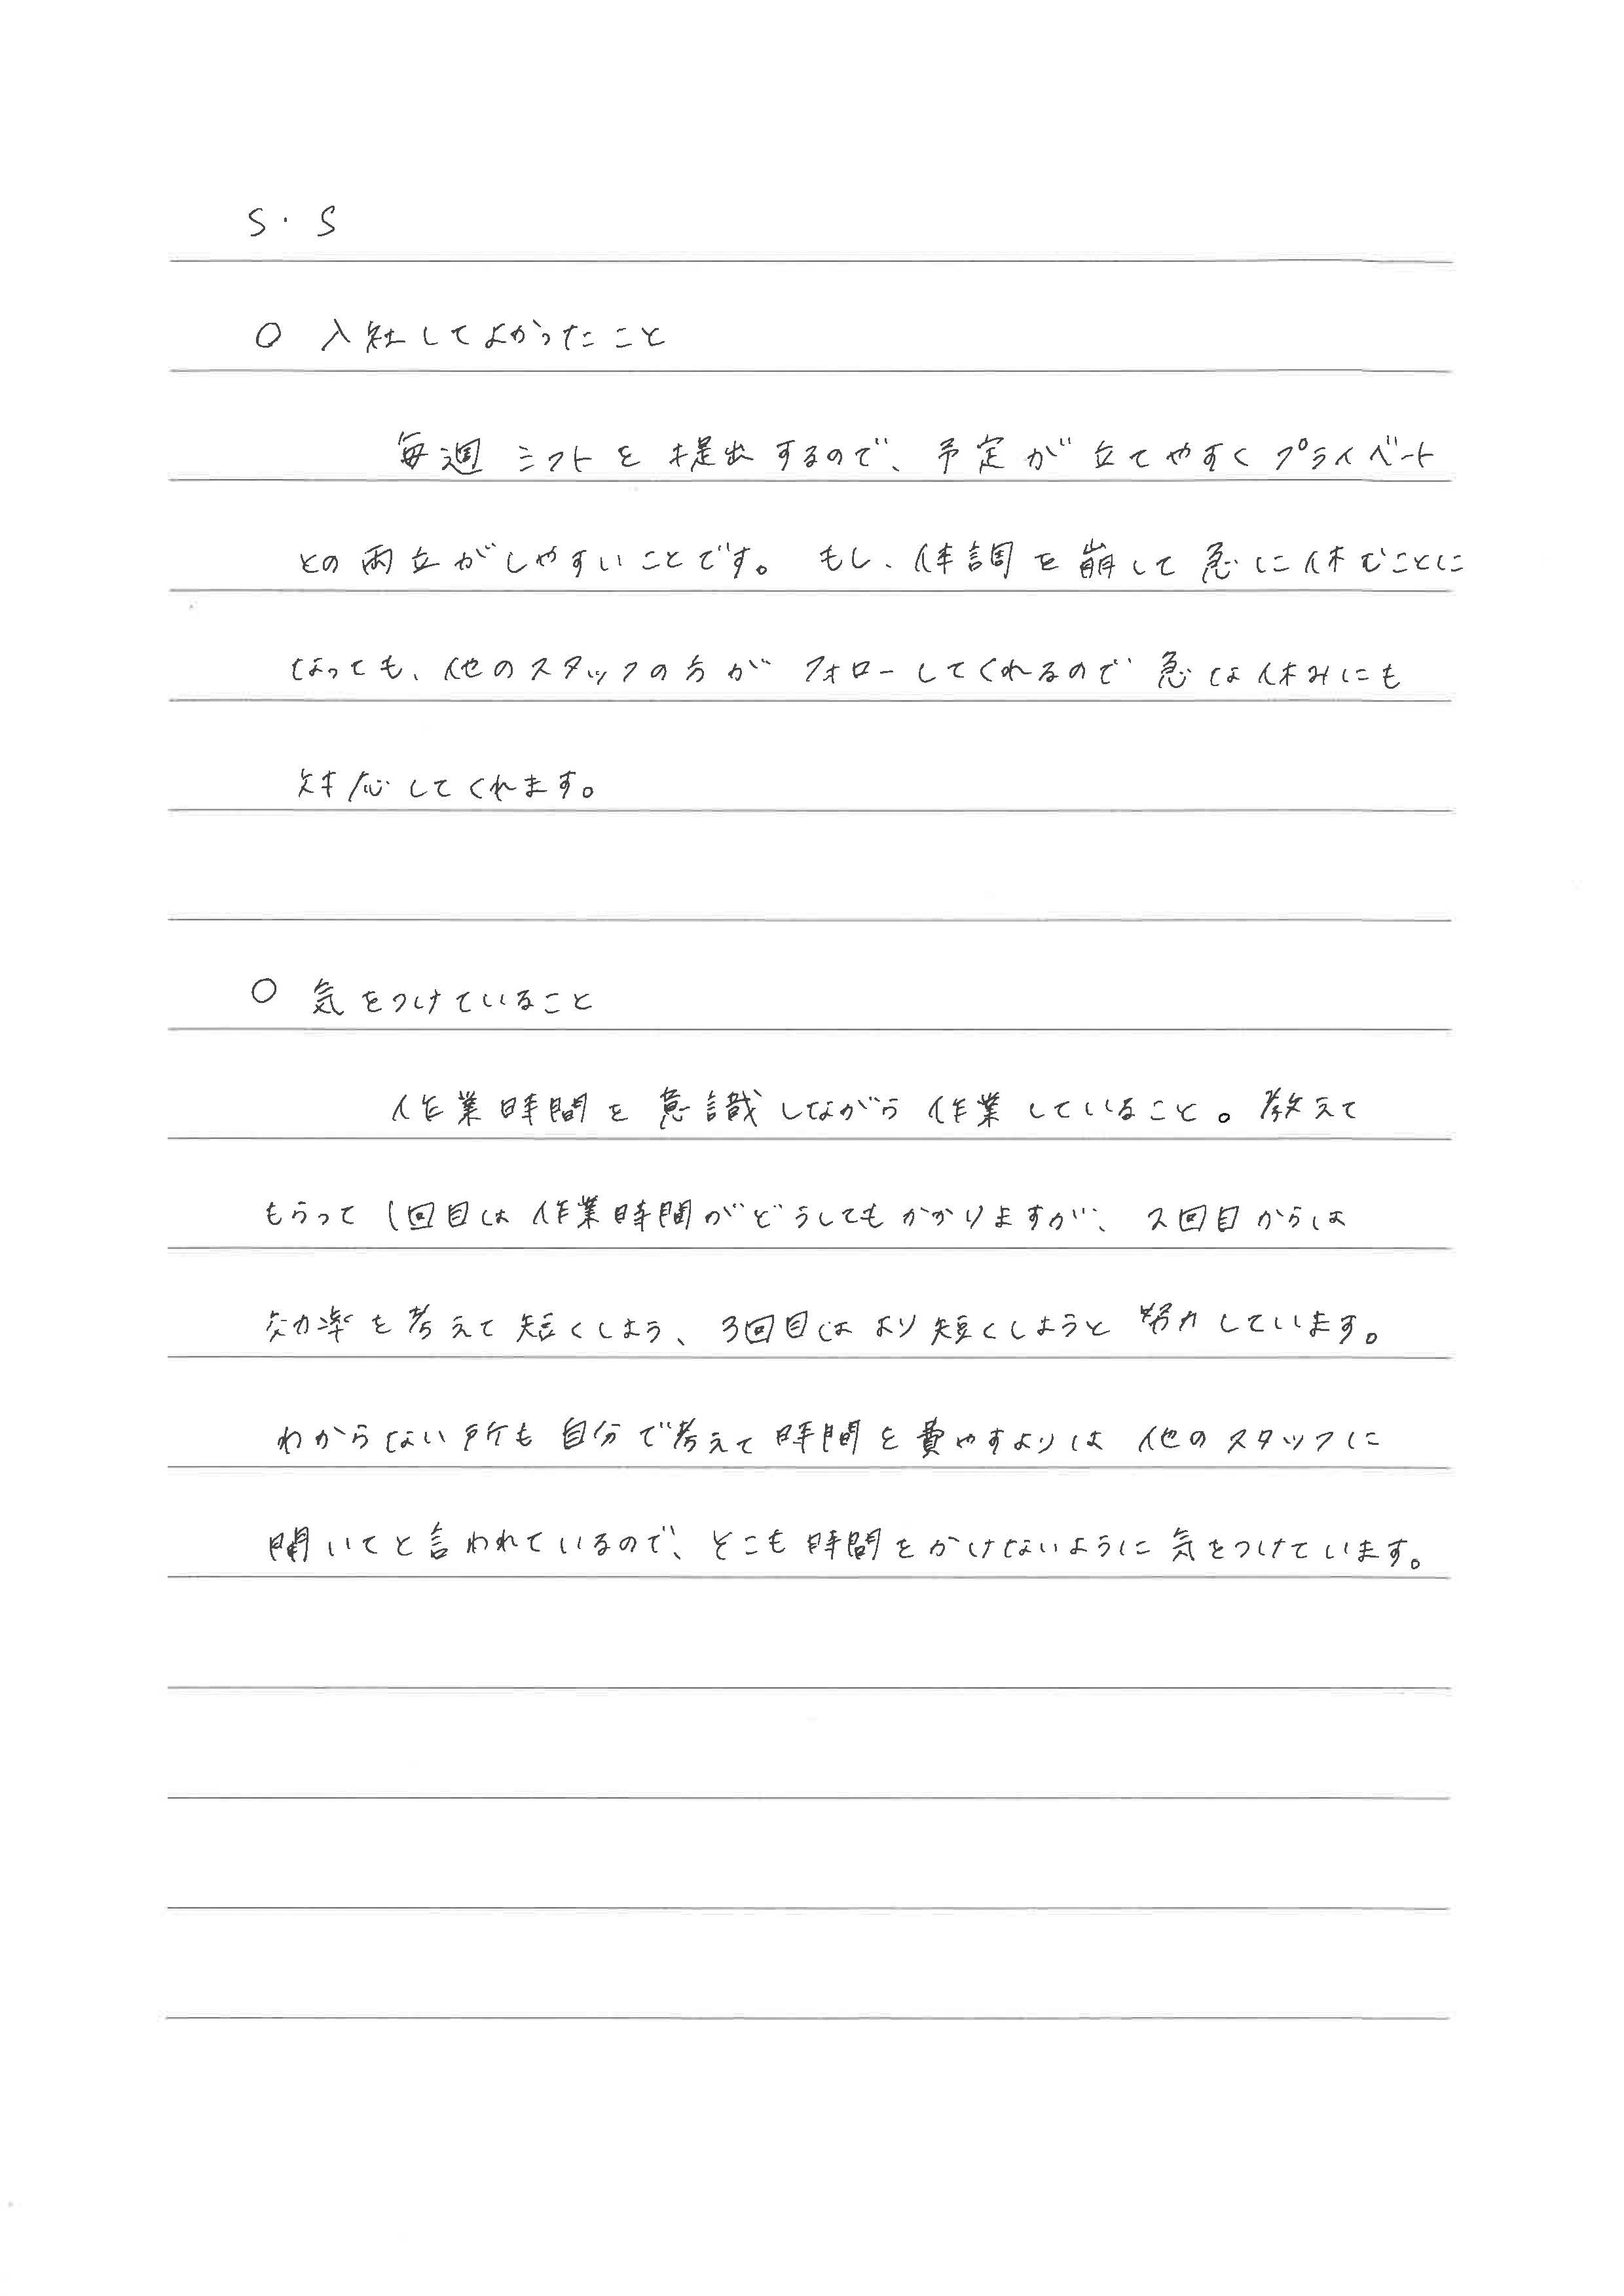 S・S
○ 入社してよかったこと
毎週シフトを提出するので、予定が立てやすくプライベート
との両立がしやすいことです。もし、体調を崩して急に休むことに
なっても、他のスタッフの方がフォローしてくれるので急な休みにも
対応してくれます。
○ 気をつけていること
作業時間を意識しながら作業していること。教えて
もらって1回目は作業時間がどうしてもかかりますが、2回目からは
効率を考えて短くしよう、3回目はより短くしようと努力しています。
わからない所も自分で考えて時間を費やすよりは他のスタッフに
聞いてと言われているので、そこも時間をかけないように気をつけています。